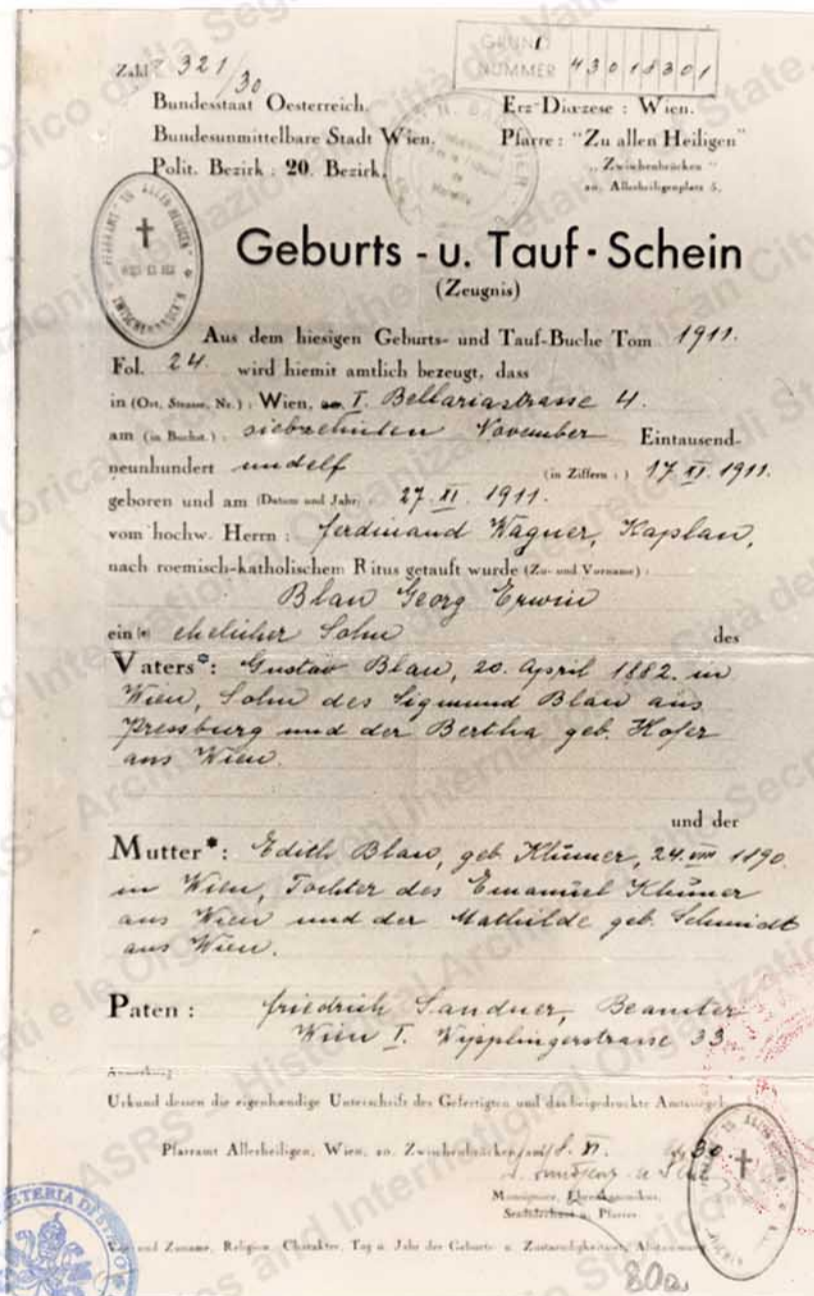 Zahl 321/30
GRUND
NUMMER 43018301
Bundesstaat Oesterreich.
Erz-Diozese : Wien.
Bundesunmittelbare Stadt Wien.
Pfarre : "Zu allen Heiligen"
Polit. Bezirk : 20. Bezirk,
"Zwischenbrücken"
20. Allerheiligenplatz 5.
Geburts - u. Tauf - Schein
(Zeugnis)
Aus dem hiesigen Geburts- und Tauf-Buche Tom 1911.
Fol. 24. wird hiemit amtlich bezeugt, dass
in (Ort, Strasse, Nr.) : Wien, I. Bellariastrasse 4.
am (in Buchst.) : siebzehnten November Eintausend-
neunhundert undelf (in Ziffern :) 17. XI. 1911.
geboren und am (Datum und Jahr) : 27. XI. 1911.
vom hochw. Herrn : Ferdinand Wagner, Kaplan,
nach roemisch-katholischem Ritus getauft wurde (Zu- und Vorname) :
Blau Georg Erwin
ein ehelicher Sohn des
Vaters*: Gustav Blau, 20. April 1882. in
Wien, Sohn des Sigmund Blau aus
Pressburg und der Bertha geb. Hofer
aus Wien.
und der
Mutter*: Edith Blau, geb. 24. VIII 1890.
in Wien, Tochter des Emanuel
aus Wien und der Mathilde geb. Schmidt
aus Wien.
Paten : Friedrich Sandner, Beamter
Wien I. Wipplingerstrasse 33.
Anmerkung
Urkund dessen die eigenhaendige Unterschrift des Gefertigten und das beigedruckte Amtssiegel.
Pfarramt Allerheiligen, Wien, 20. Zwischenbrücken, am 8. XI. 30
Monsignore,
u. Pfarrer.
und Zuname, Religion, Charakter, Tag u. Jahr der Geburt u. Zustaendigkeitsort,
80a